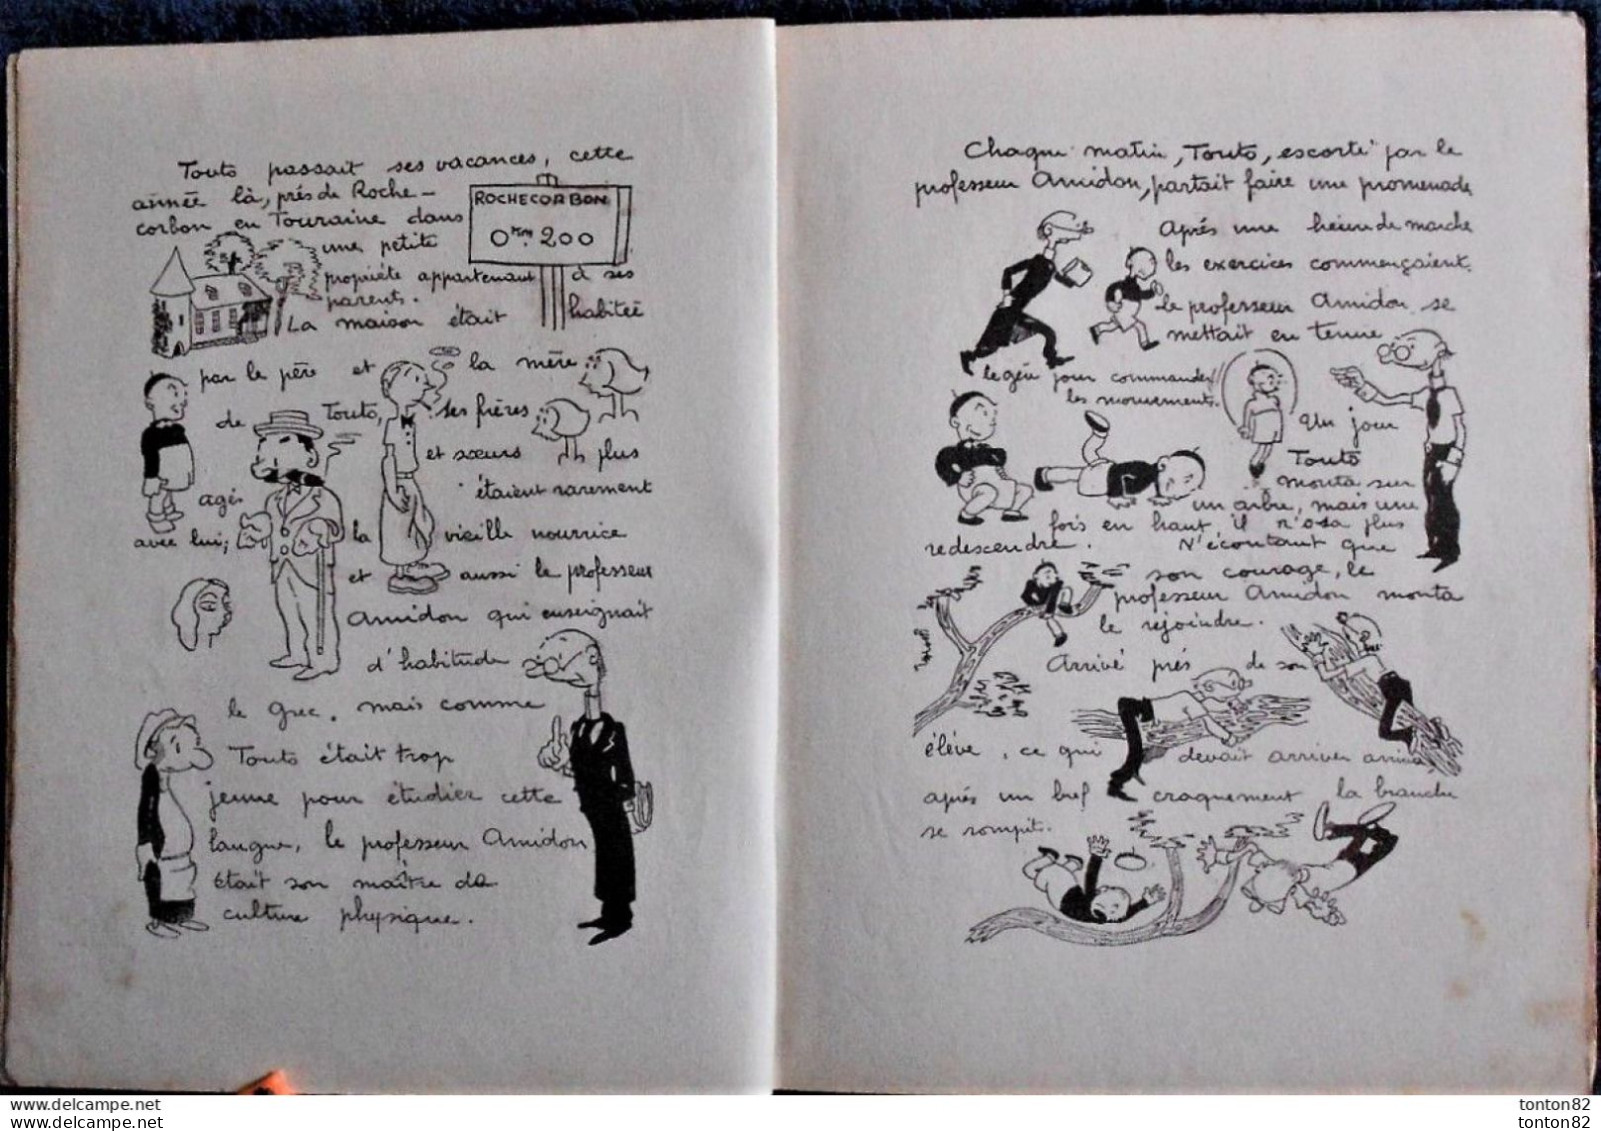 Touto passait ses vacances, cette
année là, près de Roche-
corbon en Touraine dans
ROCHECORBON
0 Km 200
une petite
propriété appartenant à ses
parents.
La maison était habitée
par le père et la mère
de Touto, ses frères
et sœurs plus
agés étaient rarement
avec lui; la vieille nourrice
et aussi le professeur
Amidon qui enseignait
d'habitude
le Grec. mais comme
Touto était trop
jeune pour étudier cette
langue, le professeur Amidon
était son maître de
culture physique.
Chaque matin, Touto, escorté par le
professeur Amidon, partait faire une promenade
Après une heure de marche
les exercices commençaient.
le professeur Amidon se
mettait en tenue
légère pour commander
les mouvements.
Un jour
Touto
monta sur
un arbre, mais une
fois en haut, il n'osa plus
redescendre. N'écoutant que
son courage, le
professeur Amidon monta
le rejoindre.
Arrivé près de son
élève, ce qui devait arriver arriva,
après un bref craquement la branche
se rompit.
tonton82
tonton82
tonton82
tonton82